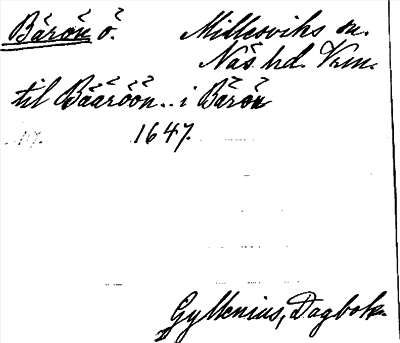 Bärön ö. Millesviks sn.
Näs hd. Vrm.
til Bääröön.. i Bärön
1647.
Gyllenius, Dagbok.